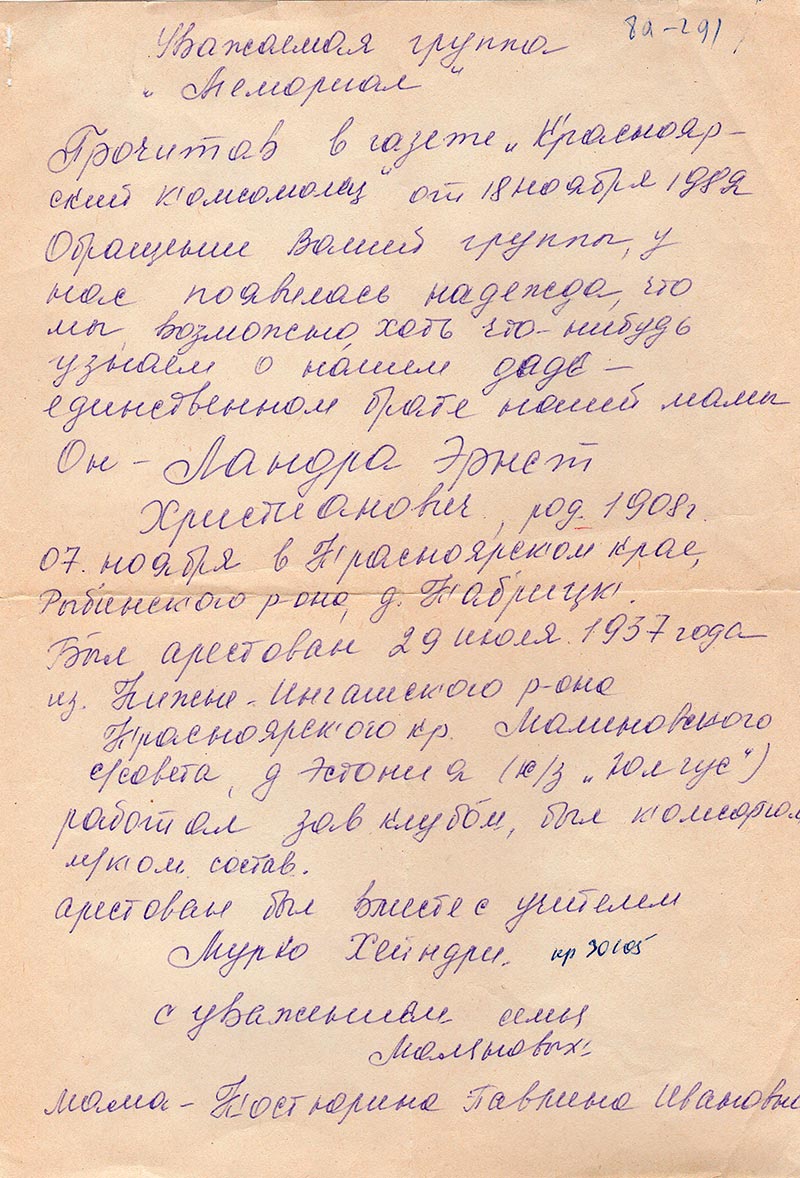 8а-291
Уважаемая группа
„Мемориал"
Прочитав в газете „Краснояр-
ский комсомолец" от 18 ноября 1989
Обращение Вашей группы, у
нас появилась надежда, что
мы, возможно, хоть что-нибудь
узнаем о нашем дяде –
единственном брате нашей мамы
Он – Ландра Эрнст
Христианович, род. 1908г.
07. ноября в Красноярском крае,
Рыбинского р-она, д. Кабрицк.
Был арестован 29 июля 1937 года
из. Нижне-Ингашского р-она
Красноярского кр. Малиновского
с/совета, д Эстония (к/з „Юлгус")
работал зав клубом, был
состав.
арестован был вместе с учителем
Мурко Хейндри.
с уважением семья
Маляновых.
мама – Костюрина Ивановна